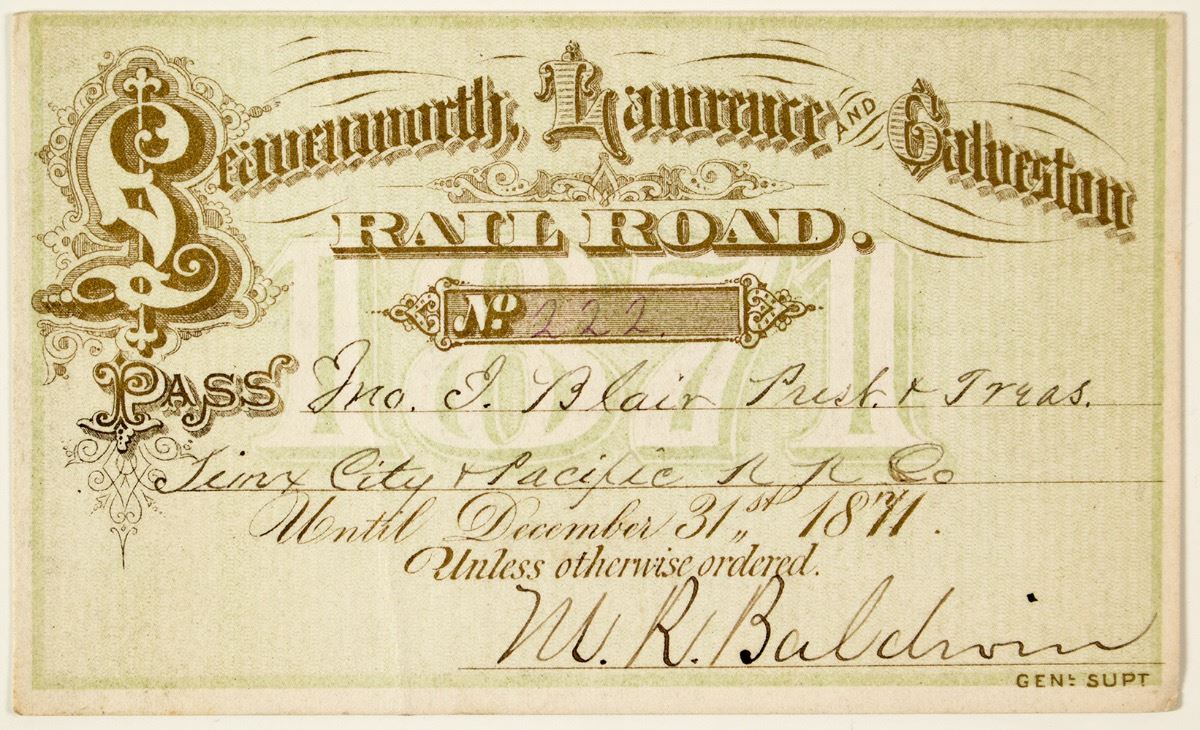 Leavenworth, Lawrence AND Galveston
RAIL ROAD.
1871
No. 222.
PASS Jno. I. Blair Prest. & Treas.
Sioux City & Pacific R R Co
Until December 31st 1871.
Unless otherwise ordered.
M. R. Baldwin
GENL SUPT